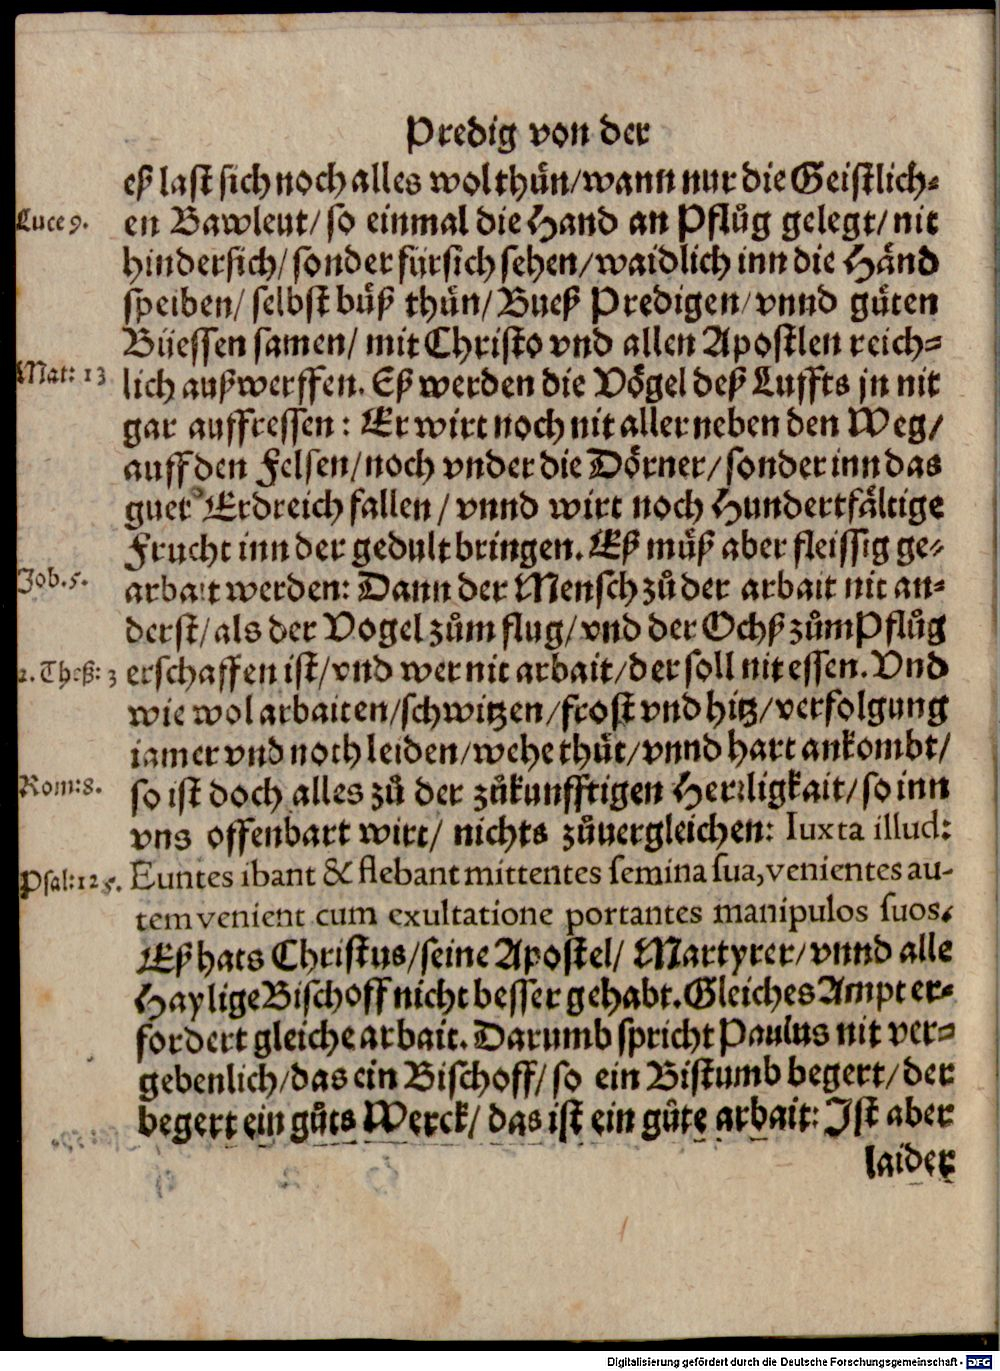 Predig von der
eß last sich noch alles wol thůn/ wann nur die Geistlich⸗
Luce 9.
en Bawleut/ so einmal die Hand an Pflůg gelegt/ nit
hindersich/ sonder fürsich sehen/ waidlich inn die Händ
speiben/ selbst bůß thůn/ Bueß Predigen/ vnnd gůten
Büessen samen/ mit Christo vnd allen Apostlen reich⸗
Mat: 13
lich außwerffen. Eß werden die Vögel deß Luffts jn nit
gar auffressen: Er wirt noch nit aller neben den Weg/
auff den Felsen/ noch vnder die Dörner/ sonder inn das
guet Erdreich fallen/ vnnd wirt noch Hundertfältige
Frucht inn der gedult bringen. Eß můß aber fleissig ge⸗
Job. 5.
arbait werden: Dann der Mensch zů der arbait nit an⸗
derst/ als der Vogel zům flug/ vnd der Ochß zům Pflůg
2. Theß: 3
erschaffen ist/ vnd wer nit arbait/ der soll nit essen. Vnd
wie wol arbaiten/ schwitzen/ frost vnd hitz/ verfolgung
iamer vnd noch leiden/ wehe thůt/ vnnd hart ankombt/
Rom: 8.
so ist doch alles zů der zůkunfftigen Herrligkait/ so inn
vns offenbart wirt/ nichts zůuergleichen: Iuxta illud:
Psal: 125.
Euntes ibant & flebant mittentes semina sua, venientes au-
tem venient cum exultatione portantes manipulos suos.
Eß hats Christus/ seine Apostel/ Martyrer/ vnnd alle
Haylige Bischoff nicht besser gehabt. Gleiches Ampt er⸗
fordert gleiche arbait. Darumb spricht Paulus nit ver⸗
gebenlich/ das ein Bischoff/ so ein Bistumb begert/ der
begert ein gůts Werck/ das ist ein gůte arbait: Ist aber
laider
Digitalisierung gefördert durch die Deutsche Forschungsgemeinschaft - DFG